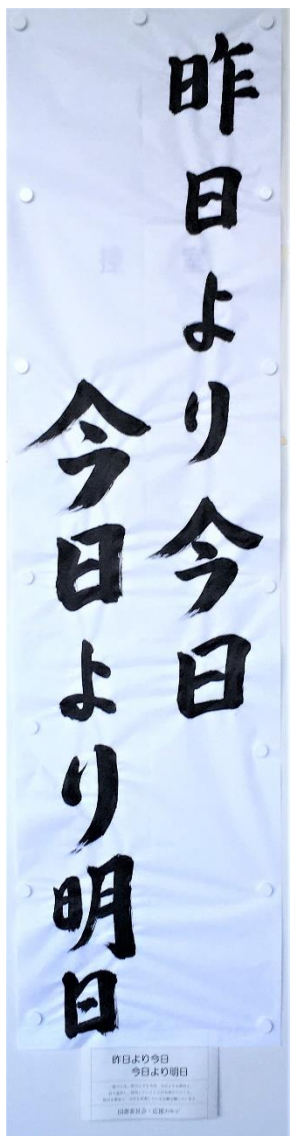 昨日より今日
今日より明日
昨日より今日
今日より明日